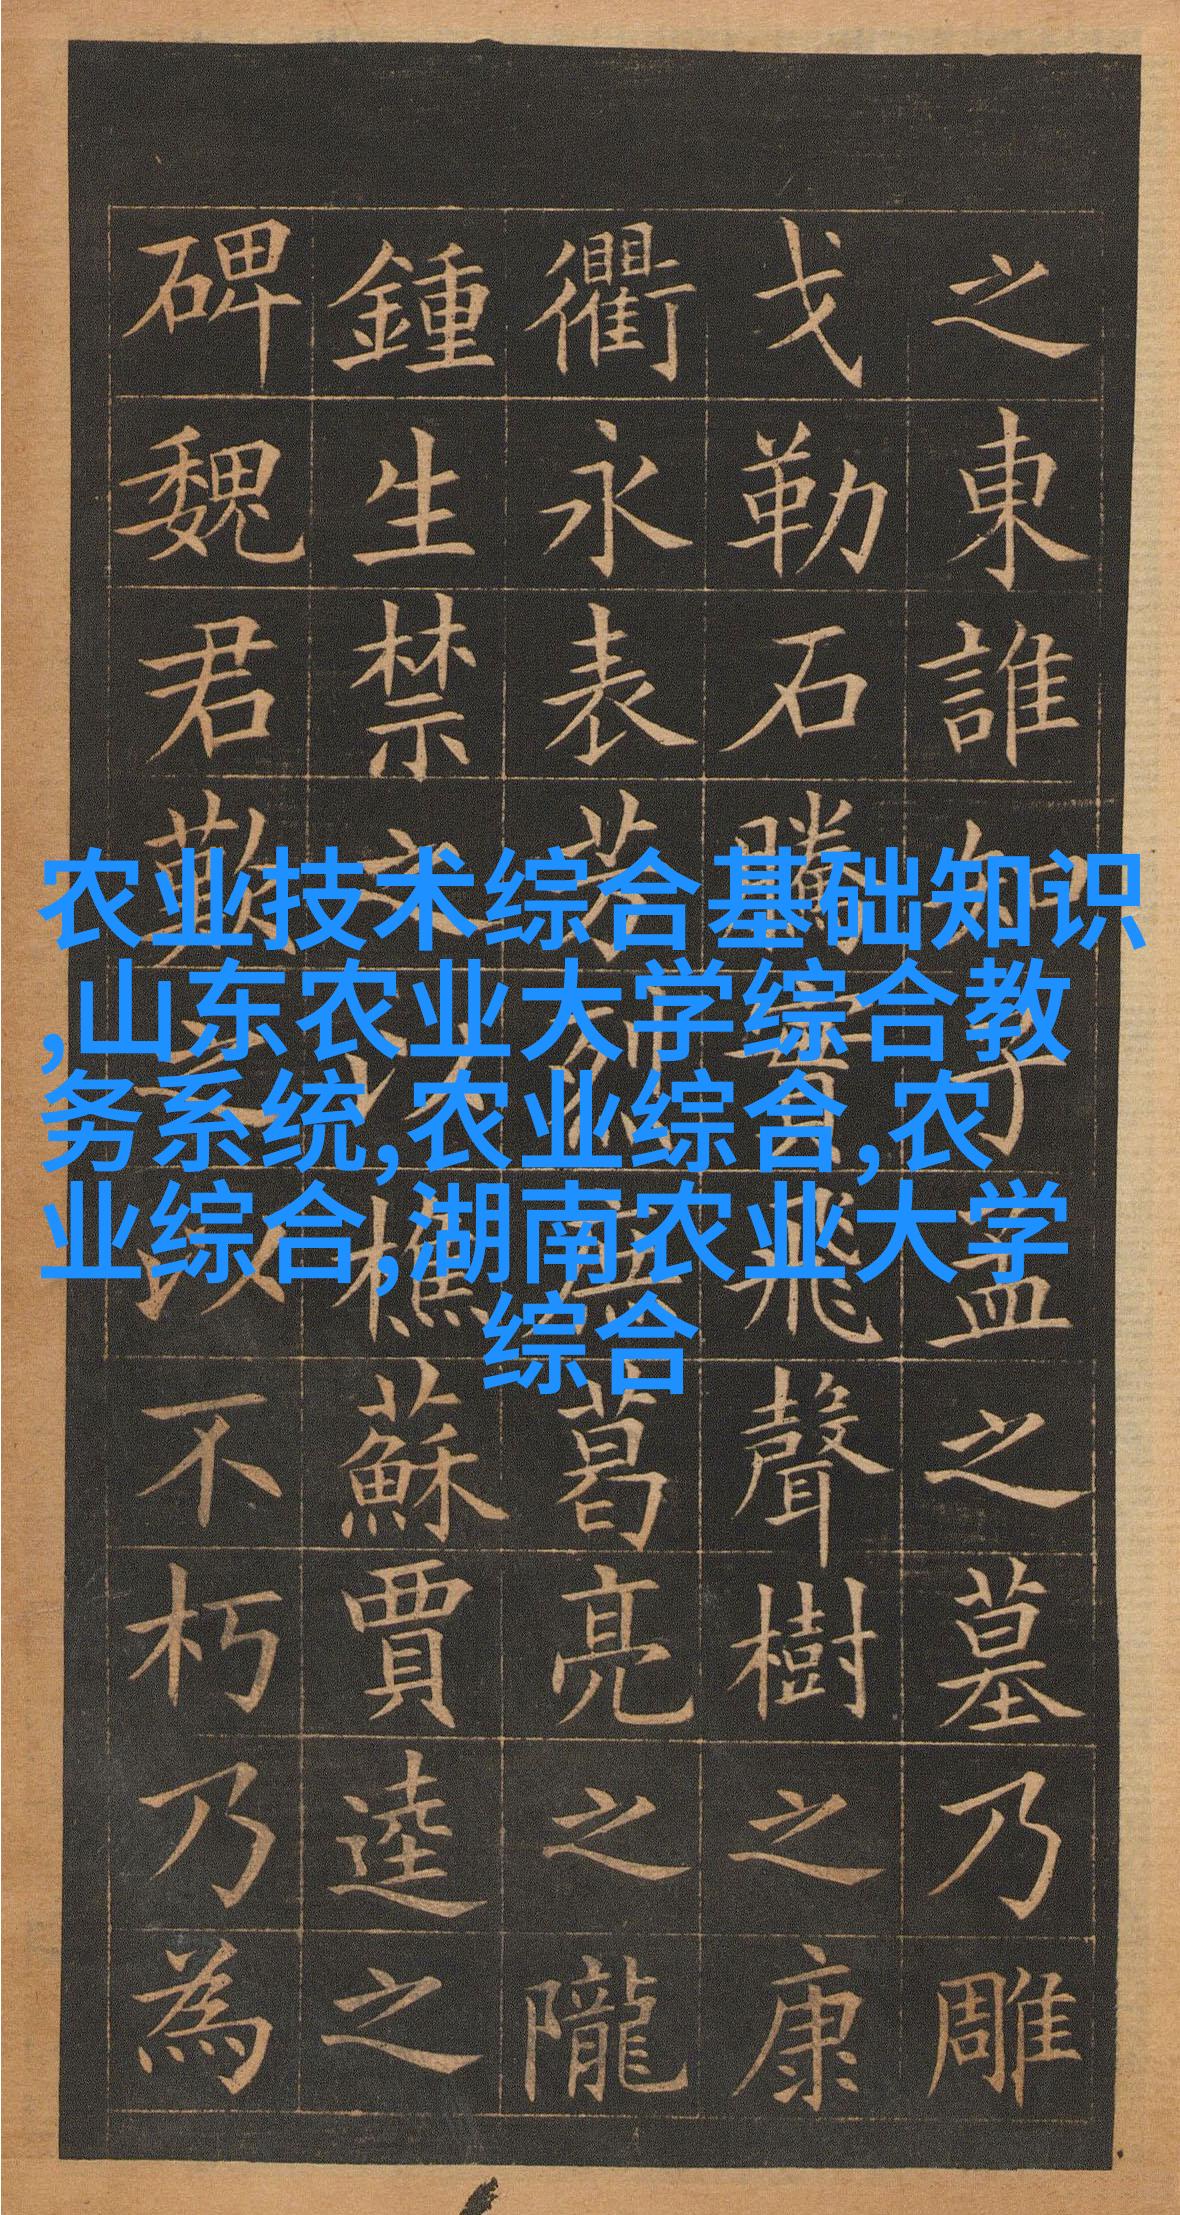 之東誰知子孟之墓乃雕
戈勒石騰實飛聲樹之康
衢永表芳烈葛亮之隴
鍾生禁之以樵蘇賈逵之
碑魏君歎之以不朽乃為
农业技术综合基础知识
,山东农业大学综合教
务系统,农业综合,农
业综合,湖南农业大学
综合